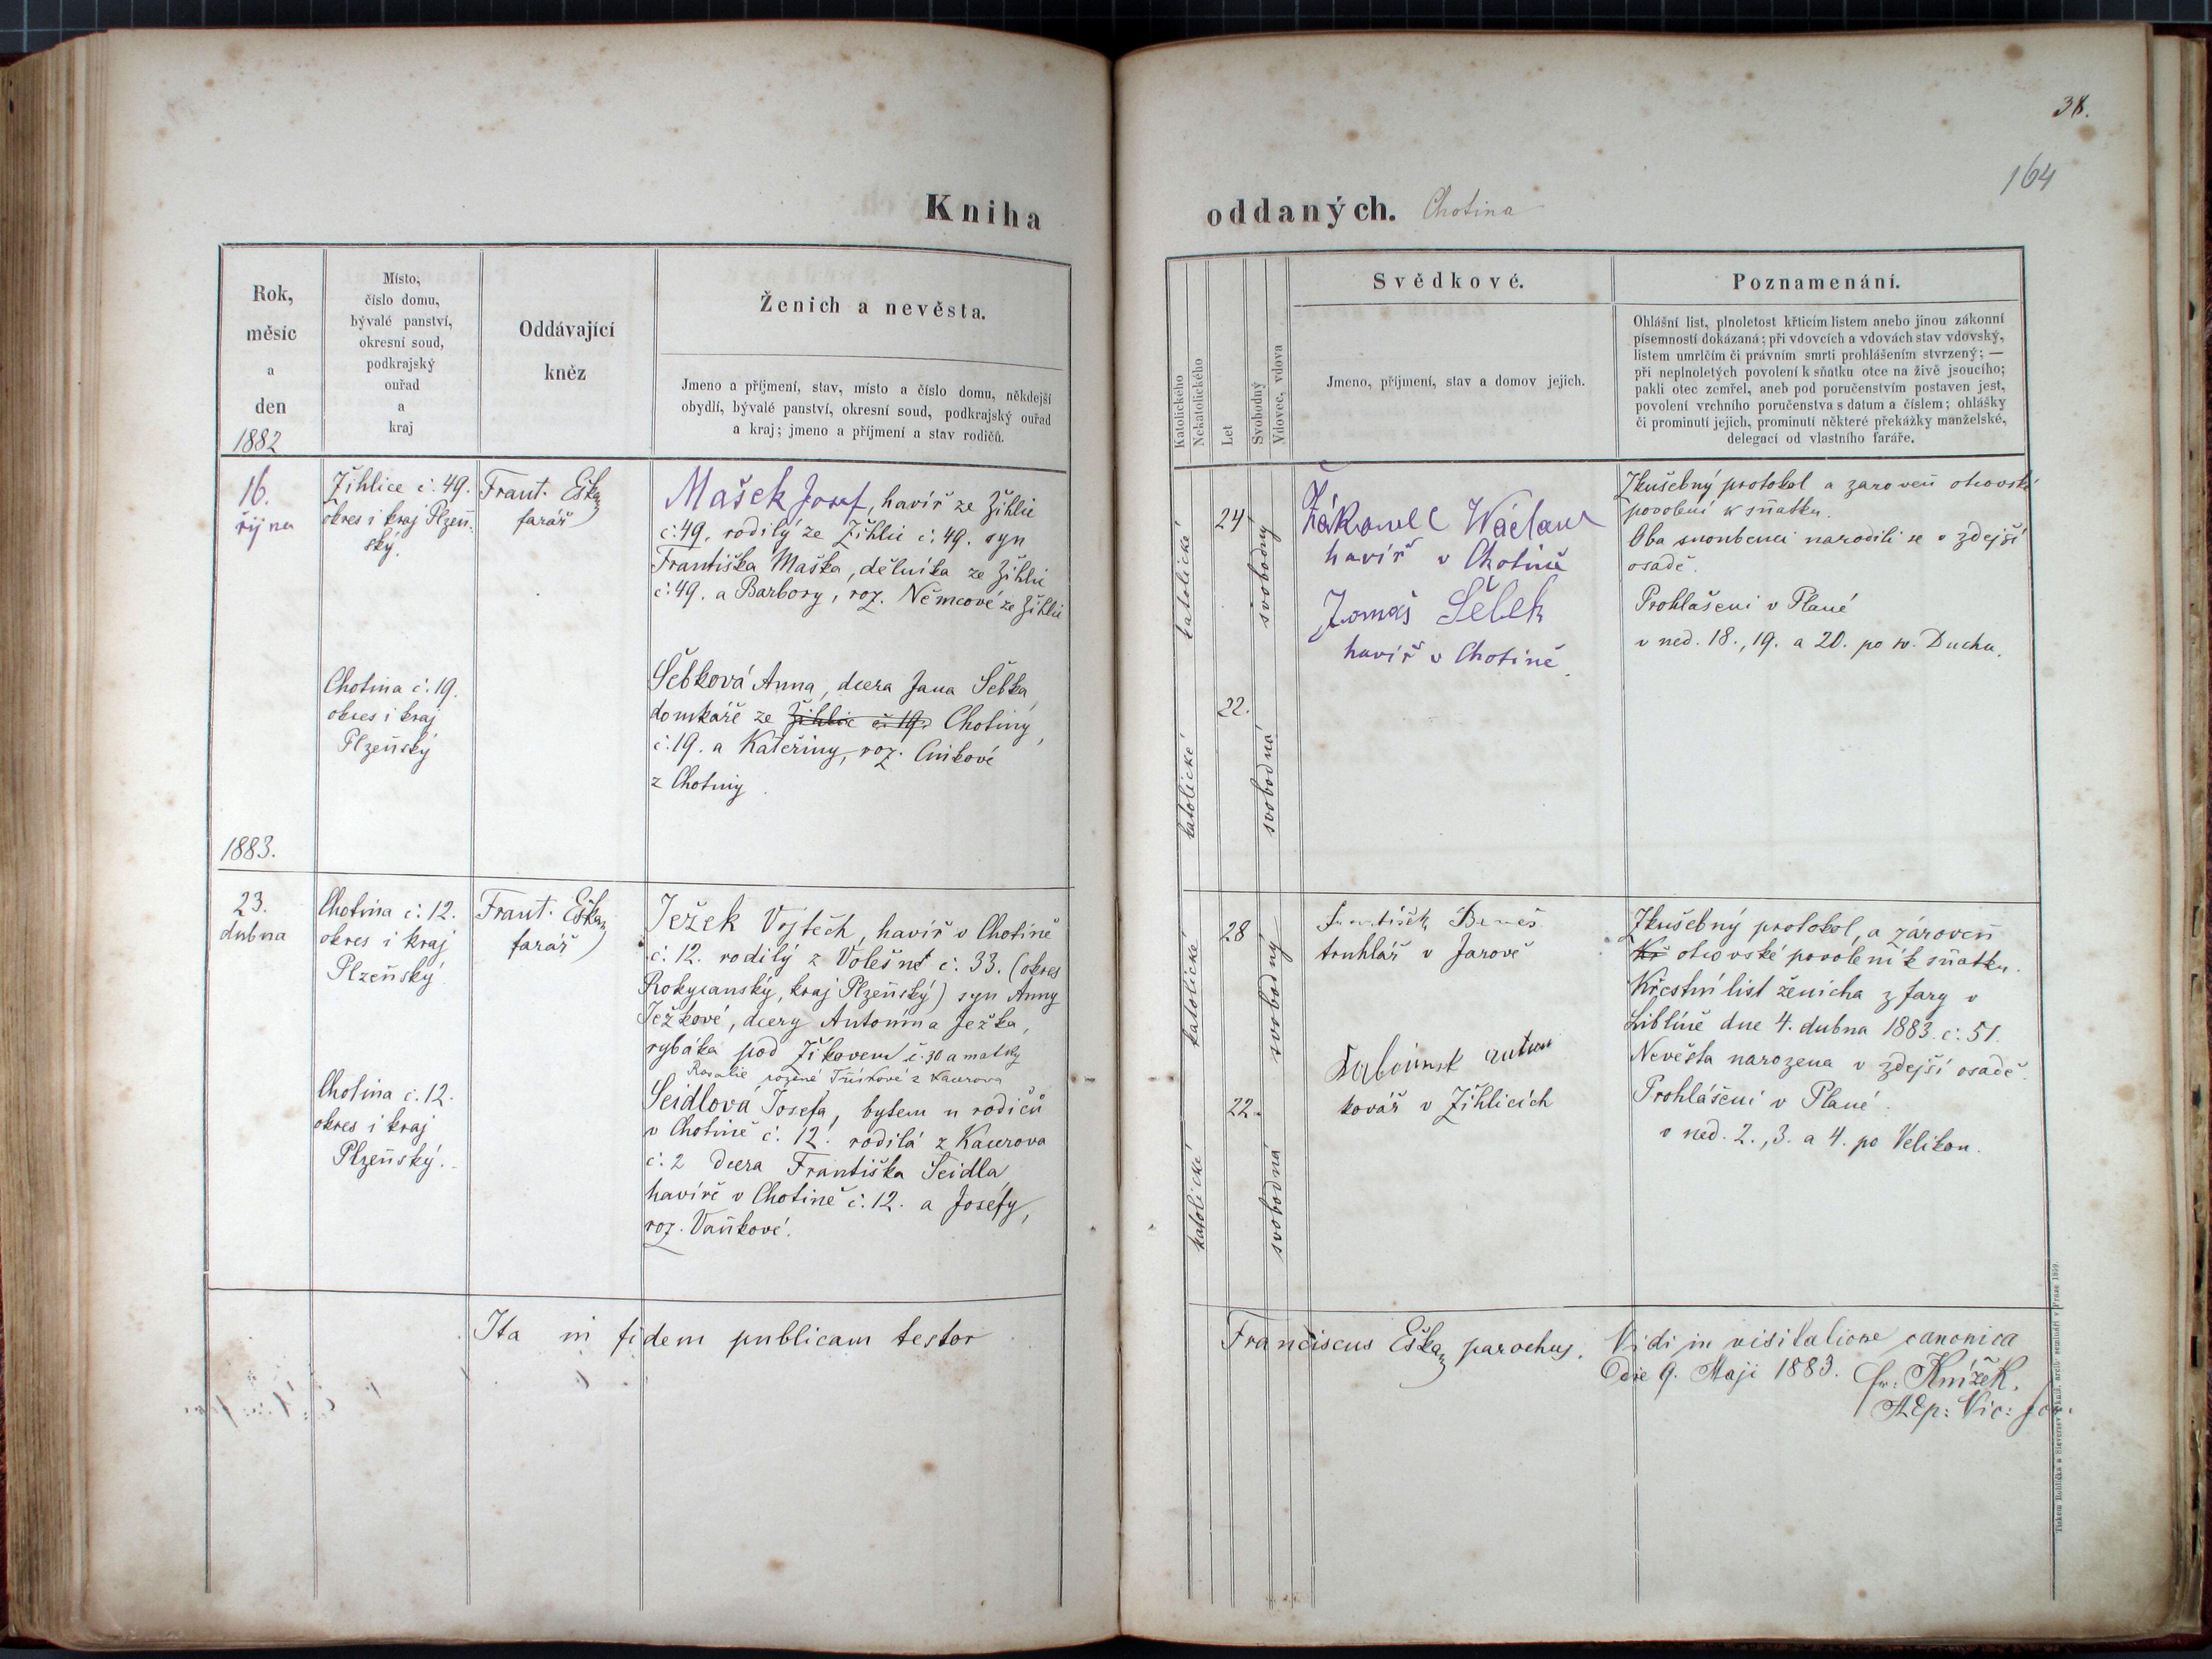 Kniha
Rok,
měsíc
a
den
1882
Místo,
číslo domu,
bývalé panství,
okresní soud,
podkrajský
ouřad
a
kraj
Oddávající
kněz
Ženich a nevěsta.
Jmeno a příjmení, stav, místo a číslo domu, někdejší
obydlí, bývalé panství, okresní soud, podkrajský ouřad
a kraj; jmeno a příjmení a stav rodičů.
16.
října
Žihlice č. 49.
okres i kraj Plzeň-
ský.
Frant. Eška
farář
Mašek Josef, havíř ze Žihlic
č: 49, rodilý ze Žihlic č. 49. syn
Františka Maška, dělníka ze Žihlic
č: 49. a Barbory, roz. Němcové ze Žihlic
Chotina č. 19.
okres i kraj
Plzeňský
Šebková Anna, dcera Jana Šebka,
domkáře ze Žihlic č. 19. Chotiny,
č: 19. a Kateřiny, roz.
z Chotiny
1883.
23.
dubna
Chotina č: 12.
okres i kraj
Plzeňský
Frant. Eška
farář
Ježek Vojtěch, havíř v Chotině
č: 12. rodilý z Volešné č. 33. (okres
Rokycanský, kraj Plzeňský) syn Anny
Ježkové, dcery Antonína Ježka,
rybáka pod Žikovem č. 30 a matky
Rosalie rozené z Kacerova
Chotina č. 12.
okres i kraj
Plzeňský.
Seidlová Josefa, bytem u rodičů
v Chotině č. 12. rodilá z Kacerova
č: 2 dcera Františka Seidla,
havíře v Chotině č: 12. a Josefy,
roz. Vaňkové.
Ita in fidem publicam testor
38.
164
oddaných. Chotina
Katolického
Nekatolického
Let
Svobodný
Vdovec, vdova
Svědkové.
Jmeno, příjmení, stav a domov jejich.
Poznamenání.
Ohlášní list, plnoletost křticím listem anebo jinou zákonní
písemností dokázaná; při vdovcích a vdovách stav vdovský,
listem umrlčím či právním smrti prohlášením stvrzený; —
při neplnoletých povolení k sňatku otce na živě jsoucího;
pakli otec zemřel, aneb pod poručenstvím postaven jest,
povolení vrchního poručenstva s datum a číslem; ohlášky
či prominutí jejich, prominutí některé překážky manželské,
delegací od vlastního faráře.
katolické
24
svobodný
Wáclav
havíř v Chotině
Tomáš Šebek
havíř v Chotině
Zkušebný protokol a zaroveň otcovské
povolení k sňatku.
Oba snoubenci narodili se v zdejší
osadě.
Prohlášení v Plané
v ned. 18., 19. a 20. po sv. Duchu.
katolické
22.
svobodná
katolické
28
svobodný
František Beneš
truhlář v Jarově
Zkušebný protokol, a zároveň
Kř otcovské povolení k sňatku.
Křestní list ženicha z fary v
Liblíně dne 4. dubna 1883. č: 51.
Nevěsta narozena v zdejší osadě.
Prohlášení v Plané.
v ned. 2., 3. a 4. po Velikon.
katolické
22.
svobodná
kovář v Žihlicích
Franciscus Eška parochus.
Vidi in visitatione canonica
die 9. Maji 1883. Fr. Knížek,